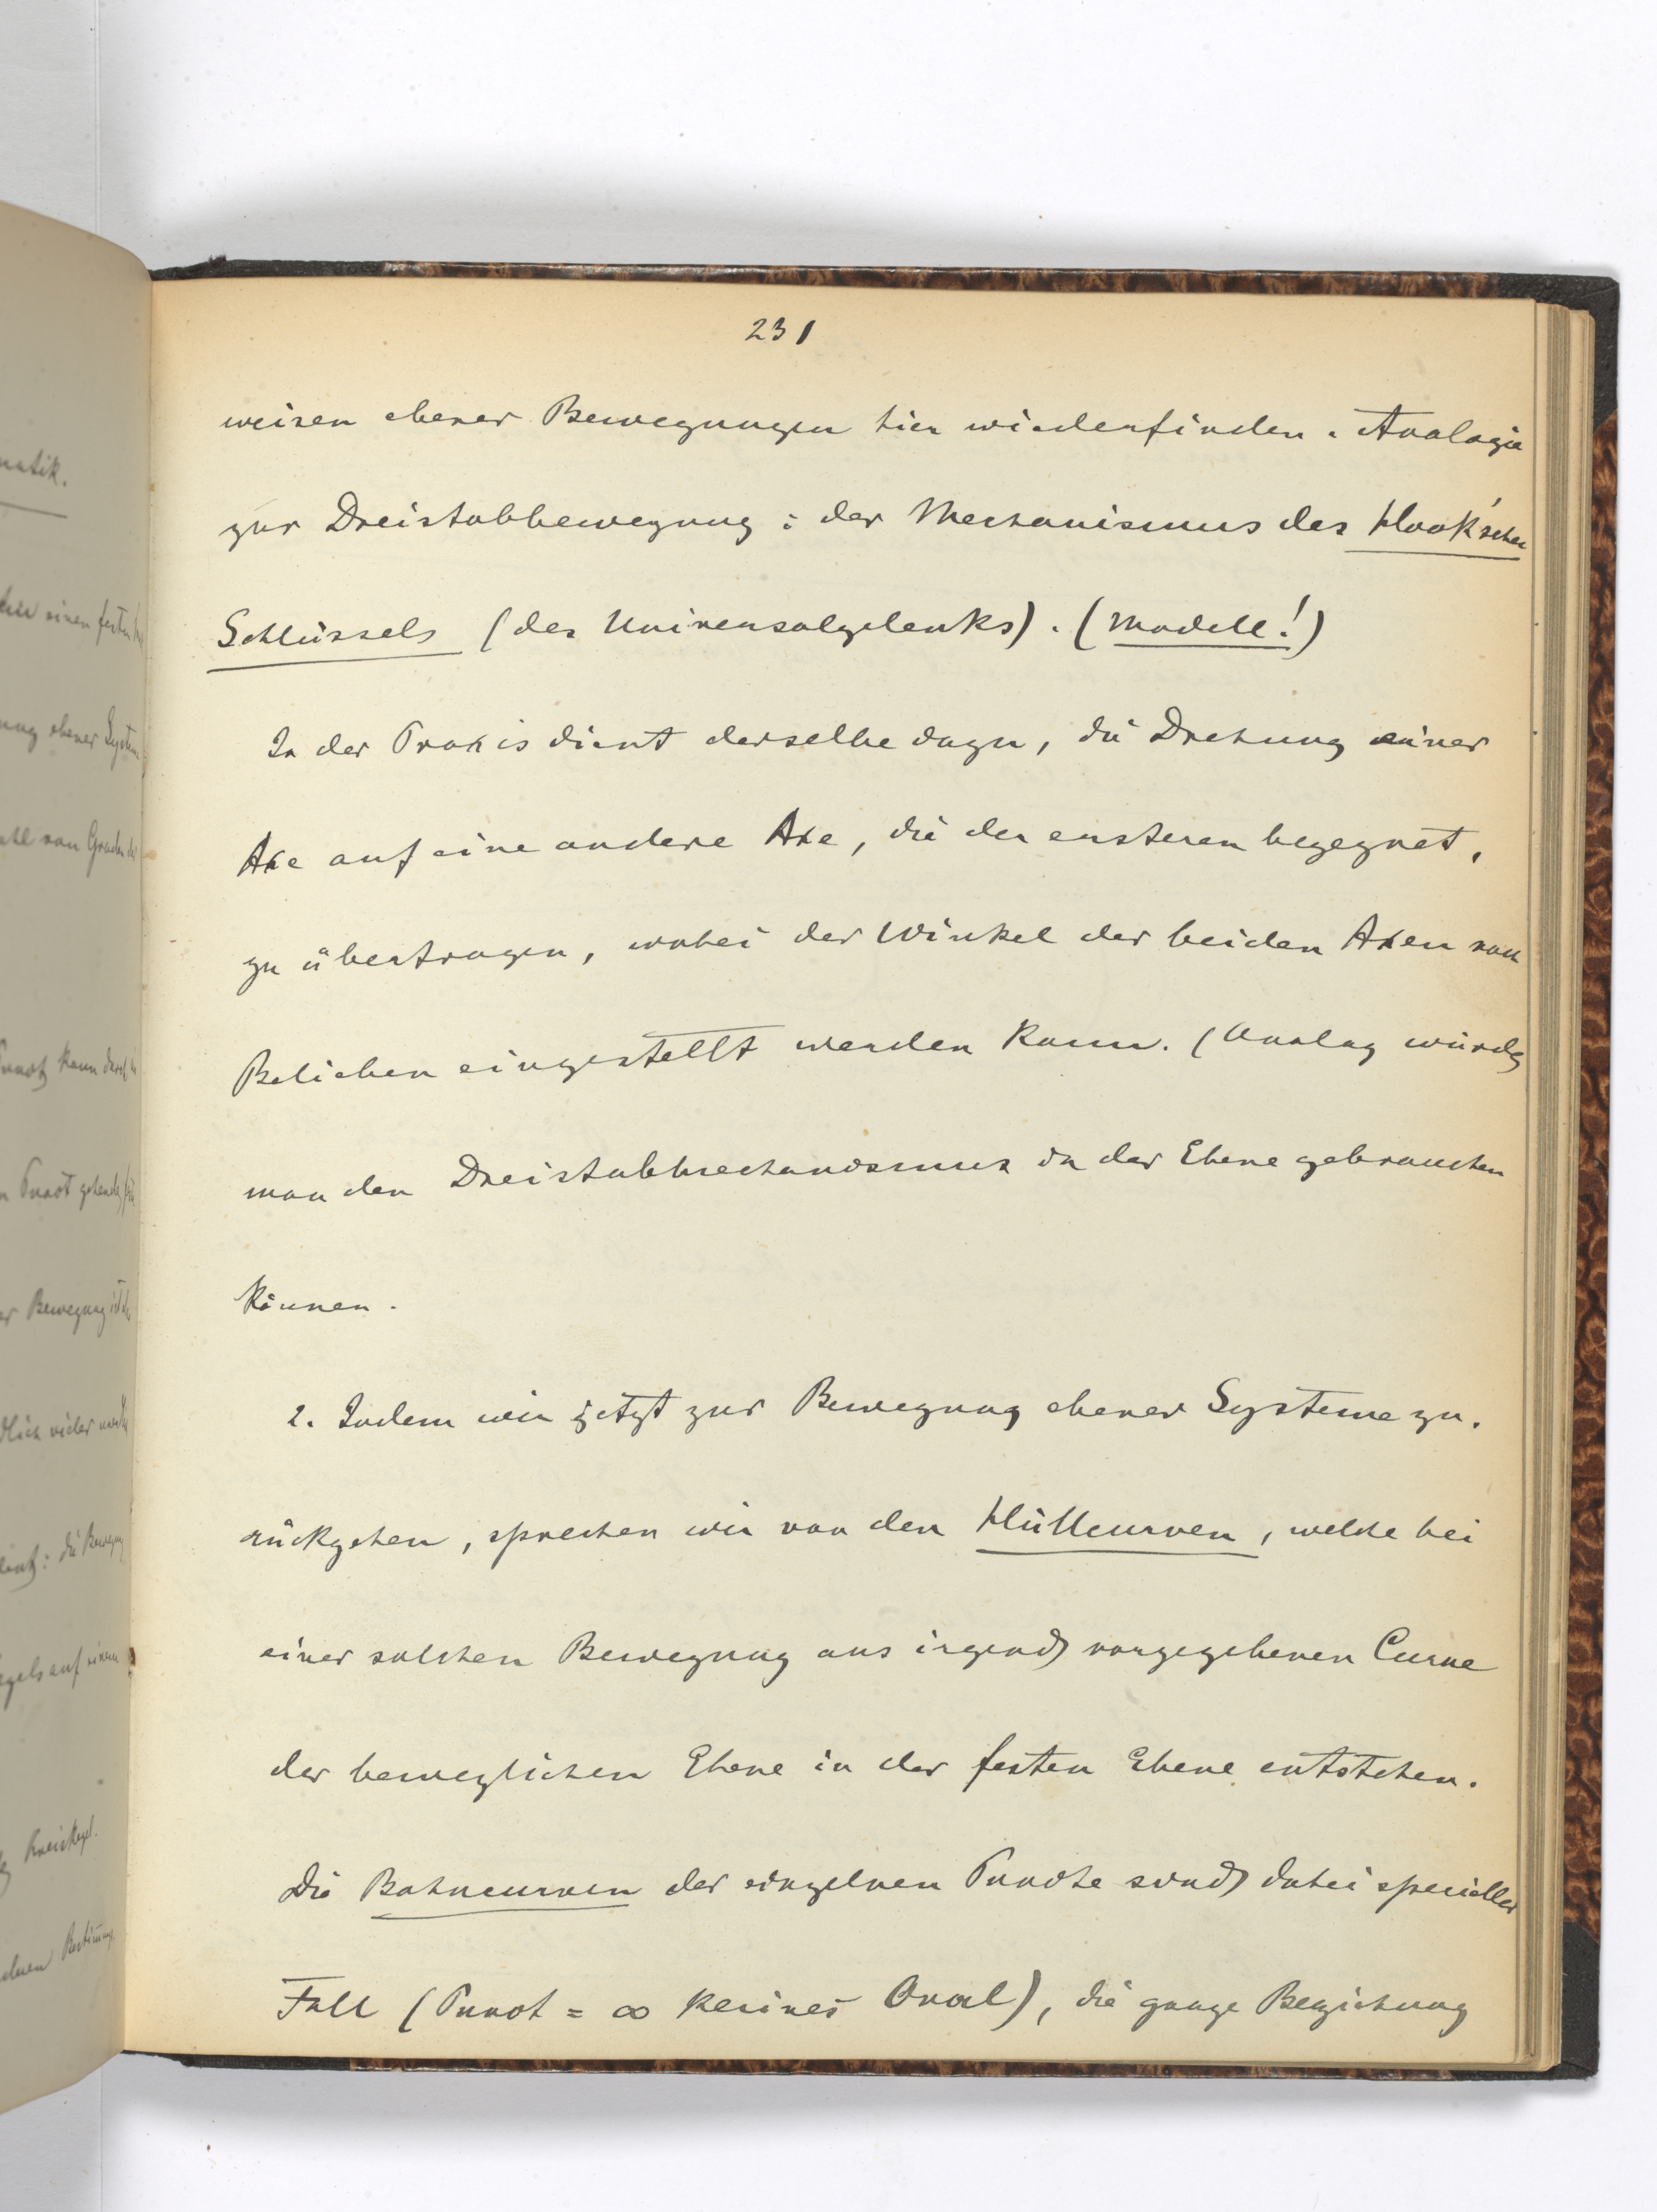 231
weisen ebener Bewegungen hier wiederfinden. Analogie
zur Dreistabbewegung: der Mechanismus des Hook'schen
Schlüssels (des Universalgelenks). (Modell!)
In der Praxis dient derselbe dazu, die Drehung einer
Axe auf eine andere Axe, die der ersteren begegnet,
zu übertragen, wobei der Winkel der beiden Axen nach
Belieben eingestellt werden kann. (Analog würde
man den Dreistabmechanismus in der Ebene gebrauchen
können.
2. Indem wir jetzt zur Bewegung ebener Systeme zu-
rückgehen, sprechen wir von den Hüllcurven, welche bei
einer solchen Bewegung aus irgend vorgegebenen Curve
der beweglichen Ebene in der festen Ebene entstehen.
Die Bahncurven der einzelnen Puncte sind dabei specieller
Fall (Punct = ∞ kleines Oval), die ganze Beziehung
natik.
einen festen
ung ebener System
von Graden
Punct kann durch
Punct gehende
er Bewegung ist
dlich vieler
: die Bewegung
egels auf einem
Kreiskegel.